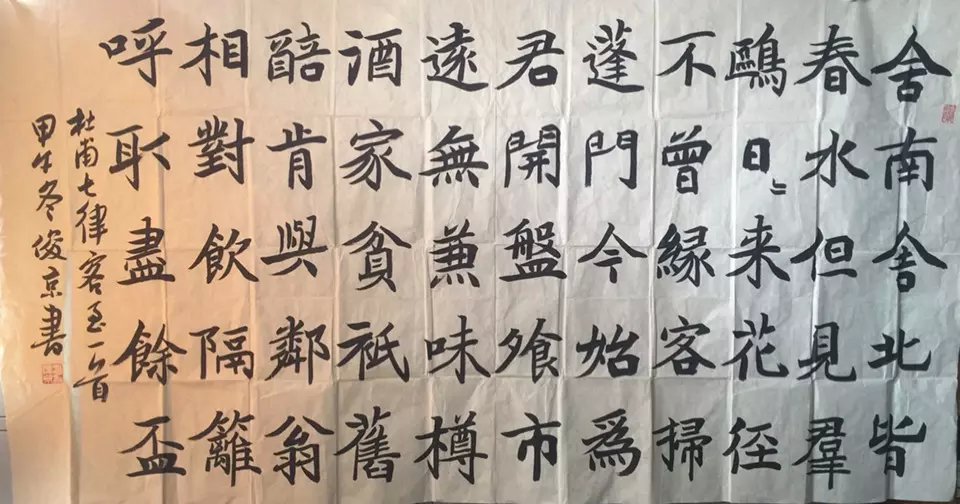 舍南舍北皆
春水但見羣
鷗日〻来花径
不曾緣客掃
蓬門今始爲
君開盤飧市
遠無兼味樽
酒家貧衹舊
醅肯與鄰翁
相對飲隔籬
呼取盡餘盃
杜甫七律客至一首
甲午冬俊京書